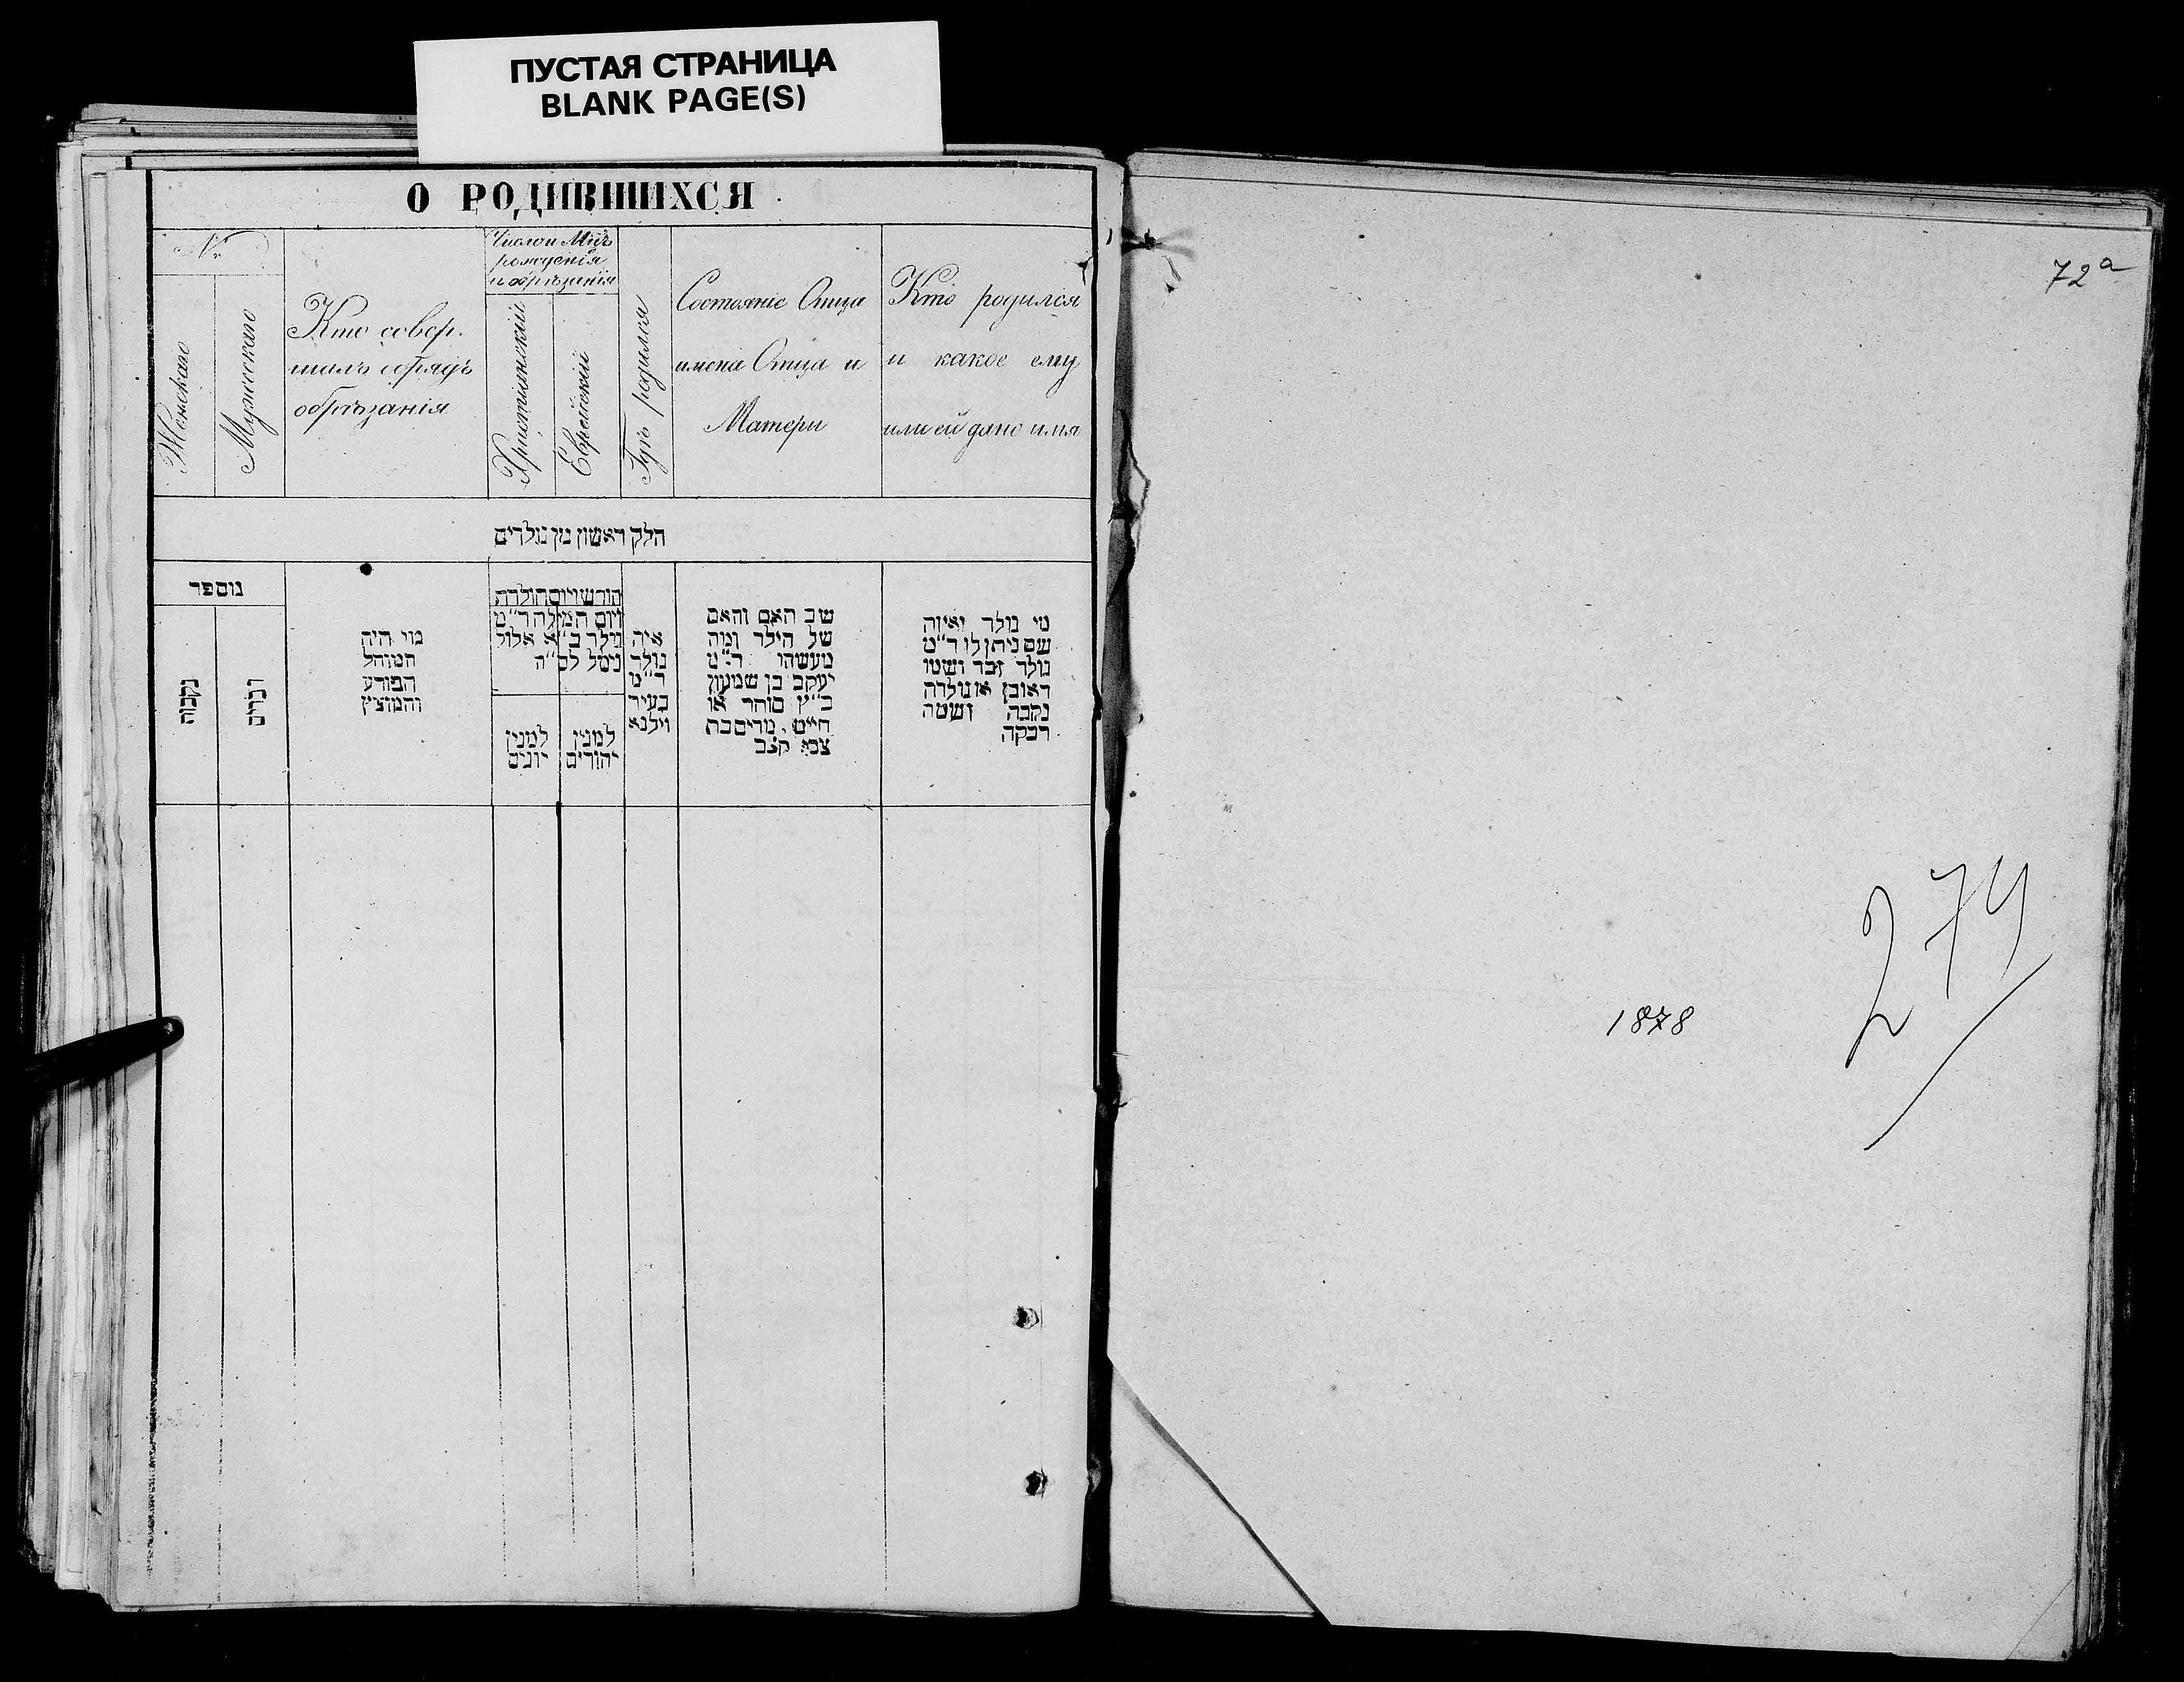 ПУСТАЯ СТРАНИЦА
BLANK PAGE(S)
О РОДИВШИХСЯ
№
Женскаго
Мужескаго
Кто совер-
шалъ обрядъ
обрѣзанія
Число и Мцъ
рожденія
и обрѣзанія
Христіянскій
Еврейскій
Гдѣ родился
Состояніе Отца
имена Отца и
Матери
Кто родился
и какое ему
или ей дано имя
חלק ראשון מן נולדים
מספר
נקבות
זכרים
מי היה
המוהל
הפורע
והמוצץ
חודש ויום הולדת
ויום המילה ד״מ
נולד ב״א אלול
נימל לס״ה
למנין
יונים
למנין
יהודים
איה
נולד
ד״מ
בעיר
וילנא
שב האם והאם
של הילד ומה
מעשהו ד״מ
יעקב בן שמעון
כ״ץ סוחר או
חייט, מרים בת
צבא קצב
מי נולד ואיזה
שם ניתן לו ד״מ
נולד זכר ושמו
ראובן או נולדה
נקבה ושמה
רבקה
72а
1878
274